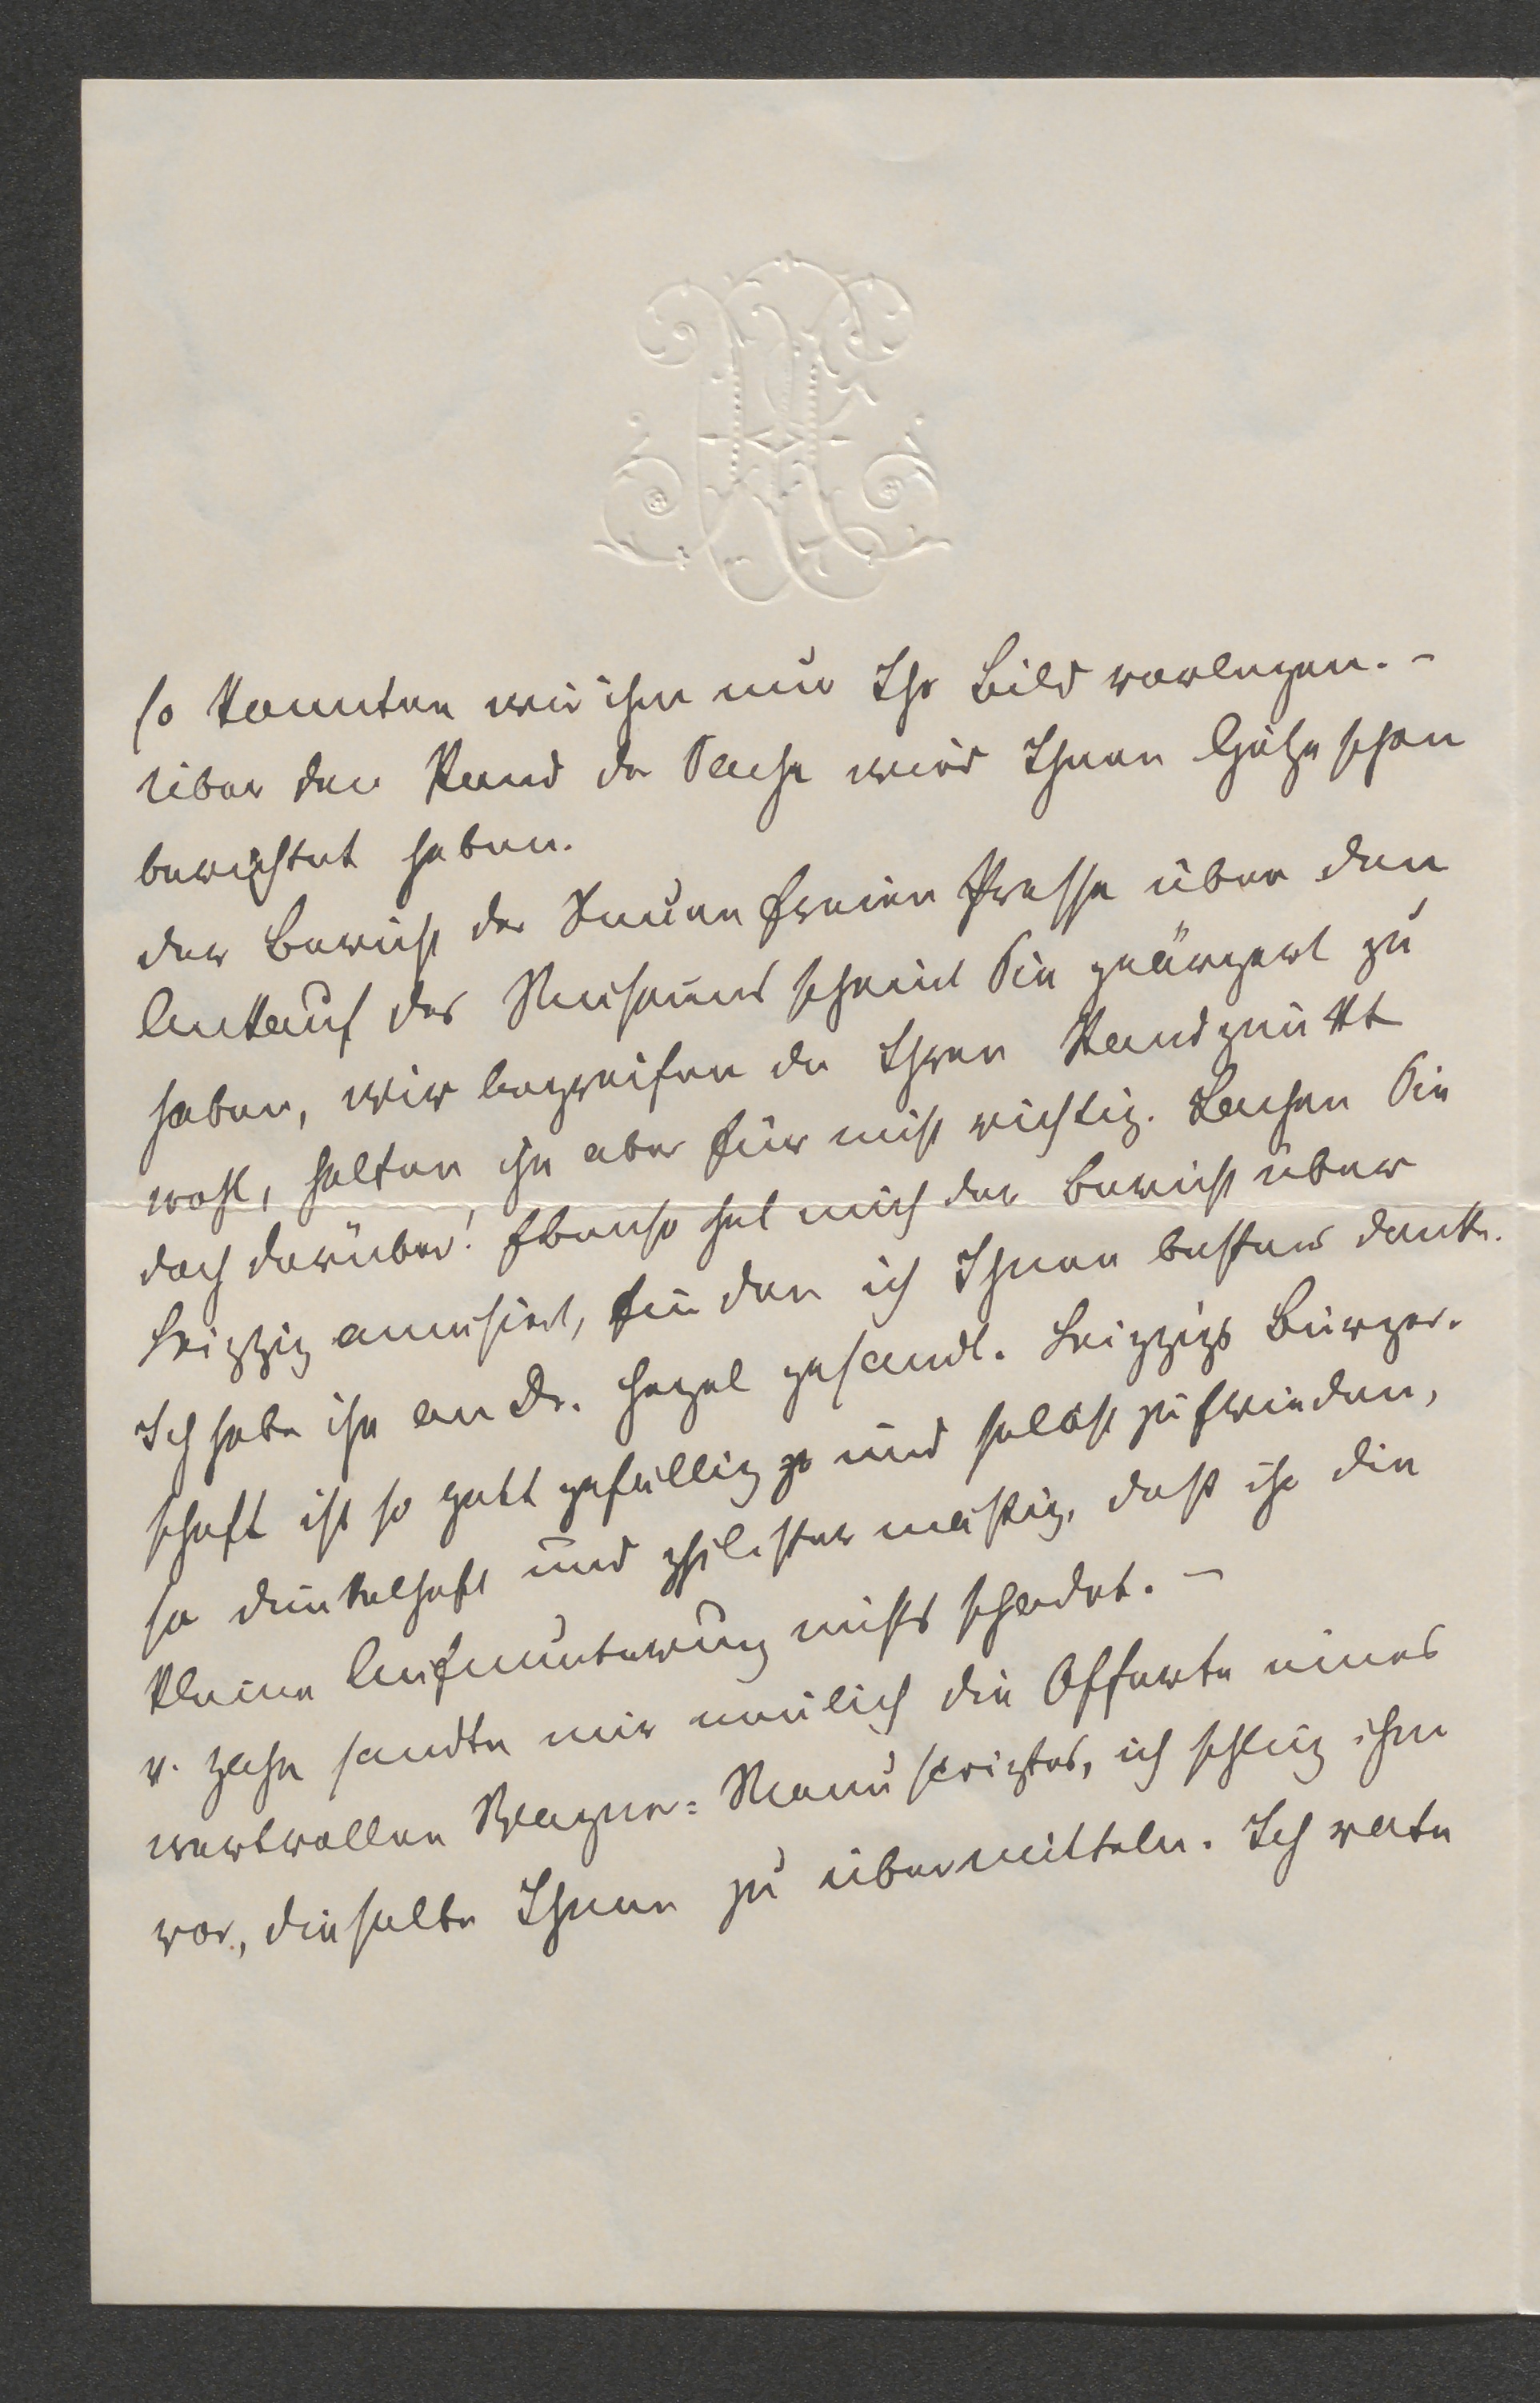 so konnten wir ihm nur Ihr Bild vorlegen. –
Über den Stand der Sache wird Ihnen Götze schon
berichtet haben.
Der Bericht der Neuen freien Presse über den
Ankauf des Museums scheint Sie geärgert zu
haben, wir begreifen da Ihren Standpunkt
wohl, halten ihn aber für nicht richtig. Lachen Sie
doch darüber! Ebenso hat mich der Bericht über
Leipzig amüsirt, für den ich Ihnen bestens danke.
Ich habe ihn an Dr. Hezel gesandt. Leipzigs Bürger-
schaft ist so satt gefällig und selbst zufrieden,
so dünkelhaft und philistermäßig, daß ihr die
kleine Aufmunterung nichts schadet. –
v. Hahn sandte mir neulich die Offerte eines
wertvollen Wagner=Manuscriptes, ich schlug ihm
vor, dieselbe Ihnen zu übermitteln. Ich rate